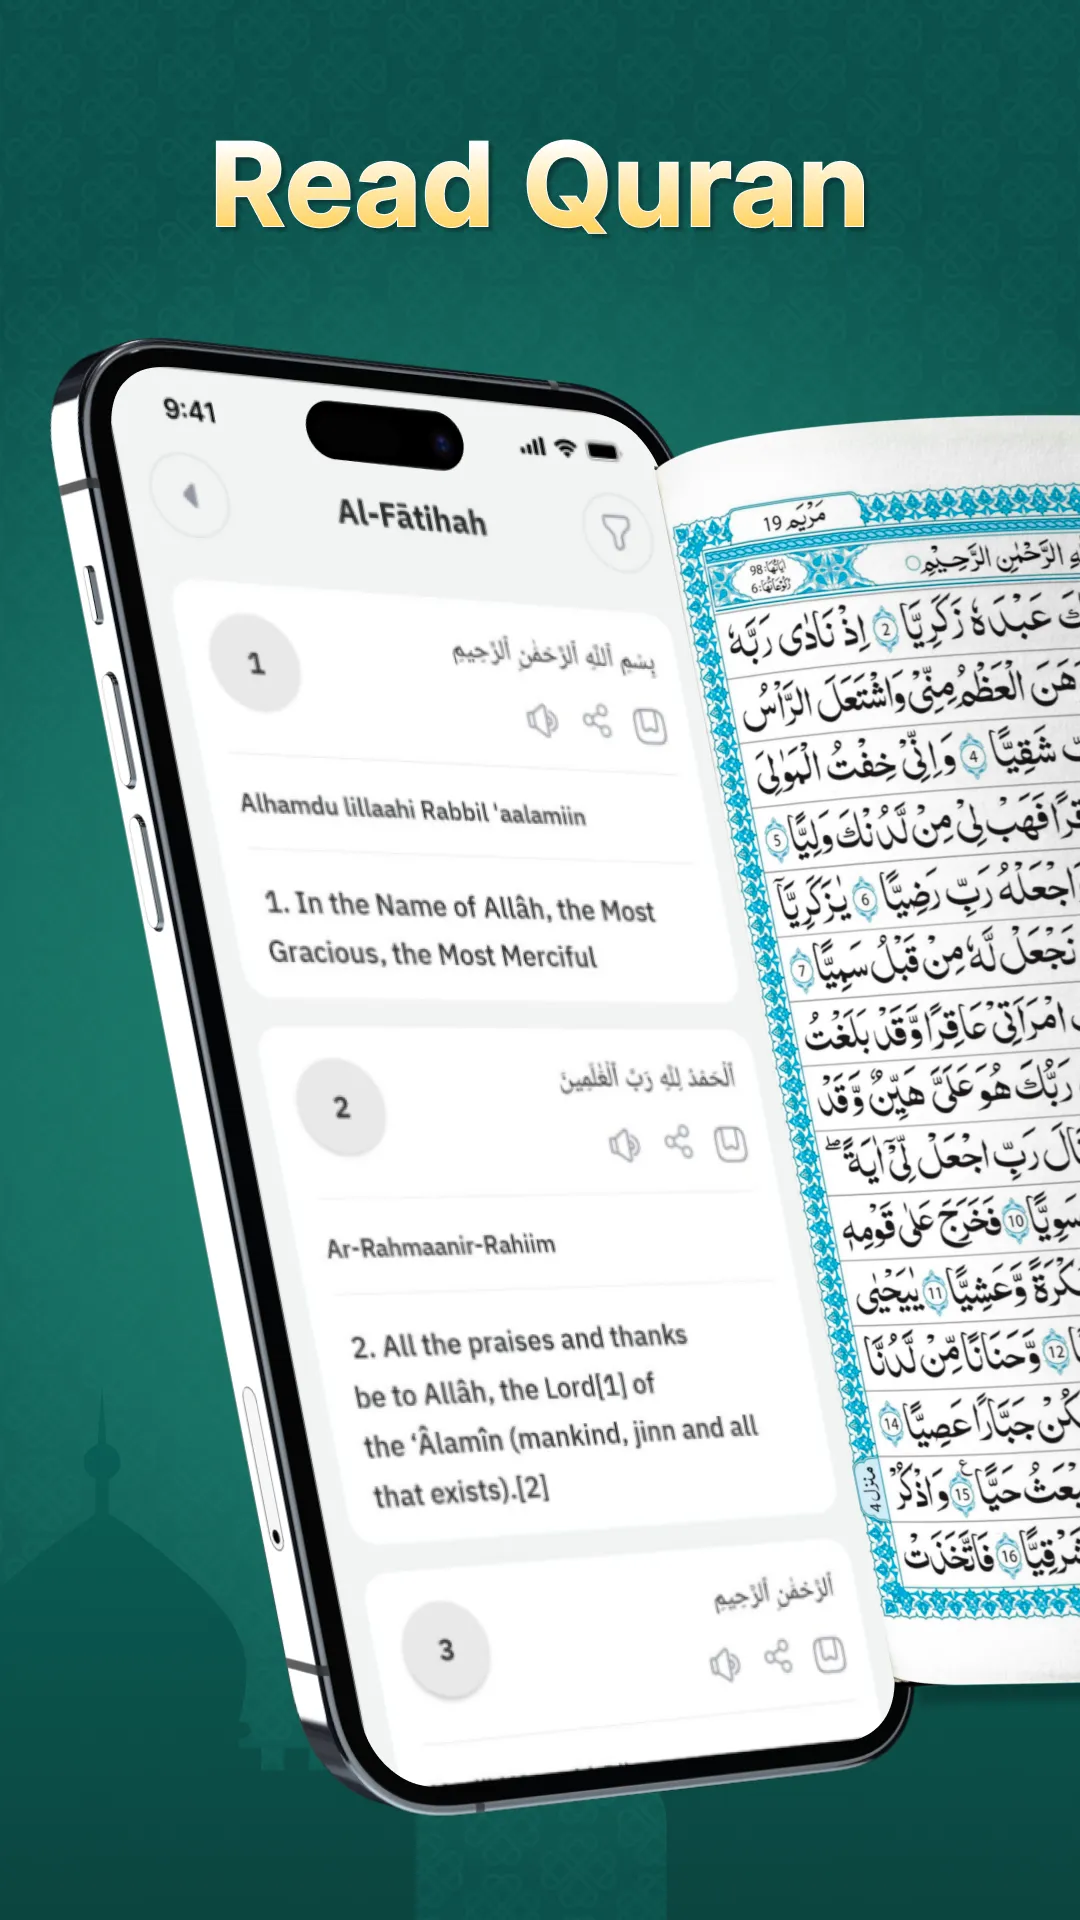 Read Quran
9:41
Al-Fātihah
1
بِسْمِ ٱللَّهِ ٱلرَّحْمَٰنِ ٱلرَّحِيمِ
Alhamdu lillaahi Rabbil 'aalamiin
1. In the Name of Allâh, the Most
Gracious, the Most Merciful
2
ٱلْحَمْدُ لِلَّهِ رَبِّ ٱلْعَٰلَمِينَ
Ar-Rahmaanir-Rahiim
2. All the praises and thanks
be to Allâh, the Lord[1] of
the ‘Âlamîn (mankind, jinn and all
that exists).[2]
3
ٱلرَّحْمَٰنِ ٱلرَّحِيمِ
مَرْيَم 19
اٰيَاتُهَا: 98
رُكُوْعَاتُهَا: 6
الرَّحْمٰنِ الرَّحِيْمِ
عَبْدَهٗ زَكَرِيَّا 2 اِذْ نَادٰى رَبَّهٗ
وَهَنَ الْعَظْمُ مِنِّىْ وَاشْتَعَلَ الرَّاْسُ
شَقِيًّا 4 وَاِنِّىْ خِفْتُ الْمَوَالِىَ
فَهَبْ لِىْ مِنْ لَّدُنْكَ وَلِيًّا 5
اجْعَلْهُ رَبِّ رَضِيًّا 6 يٰزَكَرِيَّاۤ
نَجْعَلْ لَّهٗ مِنْ قَبْلُ سَمِيًّا 7
امْرَاَتِىْ عَاقِرًا وَّقَدْ بَلَغْتُ
رَبُّكَ هُوَ عَلَىَّ هَيِّنٌ وَّقَدْ
قَالَ رَبِّ اجْعَلْ لِّىْۤ اٰيَةً ؕ
سَوِيًّا 10 فَخَرَجَ عَلٰى قَوْمِهٖ
بُكْرَةً وَّعَشِيًّا 11 يٰيَحْيٰى
12 وَّحَنَانًا مِّنْ لَّدُنَّا
يَكُنْ جَبَّارًا عَصِيًّا 14
يُبْعَثُ حَيًّا 15 ع وَاذْكُرْ
شَرْقِيًّا 16 فَاتَّخَذَتْ
منزل 4